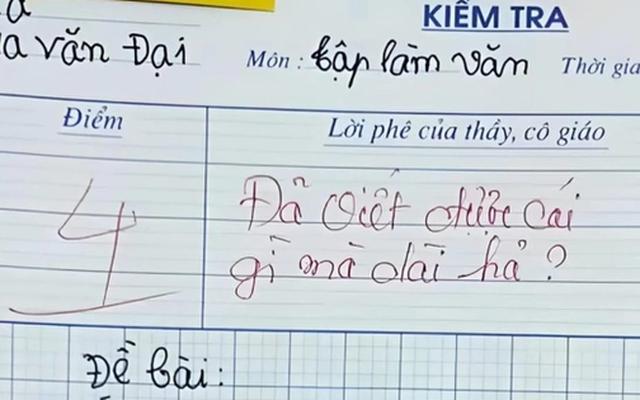 KIỂM TRA
a văn Đại
Môn : tập làm văn Thời gia
Điểm
Lời phê của thầy, cô giáo
4
Đã viết được cái
gì mà dài hả ?
Đề bài :